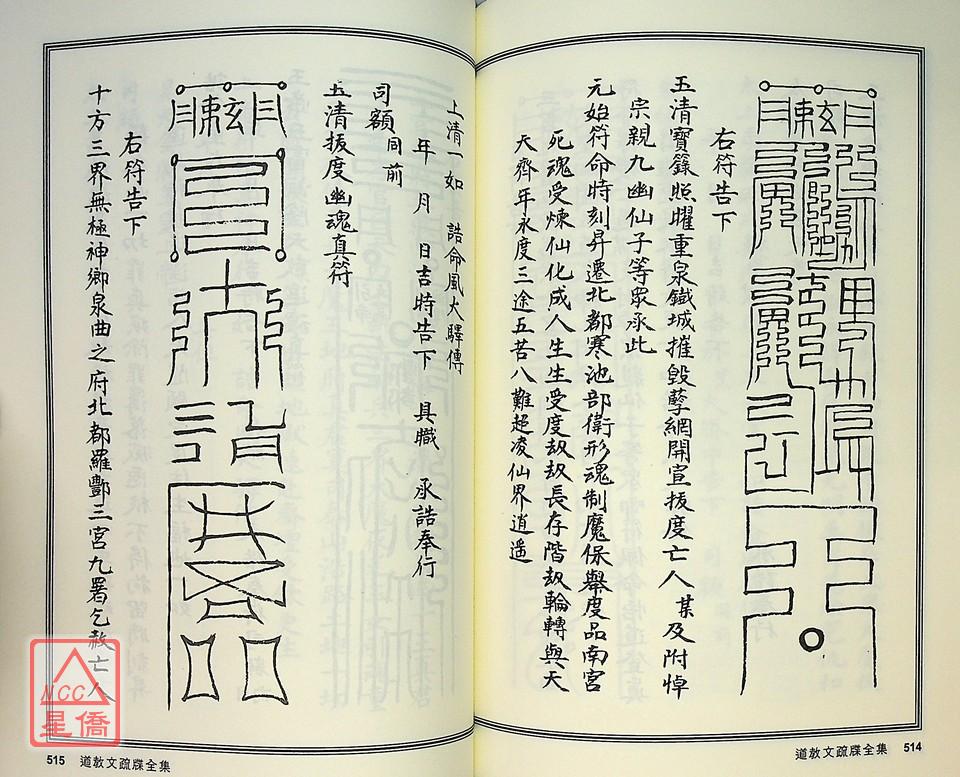 右符告下
玉清寶籙照耀重泉鐵城摧毀孽網開宣拔度亡人 某及附悼
宗親九幽仙子等眾承此
元始符命時刻昇遷北都寒池部衛形魂制魔保舉度品南宮
死魂受煉仙化成人生生受度劫劫長存階劫輪轉與天
天齊年永度三途五苦八難超凌仙界逍遥
道教文疏牒全集 514
上清一如 誥命風火驛傳
年 月 日吉時告下 具職 承誥奉行
司額同前
玉清拔度幽魂真符
右符告下
十方三界無極神鄉泉曲之府北都羅酆三宮九署乞赦亡人
515 道教文疏牒全集
NCC
星僑